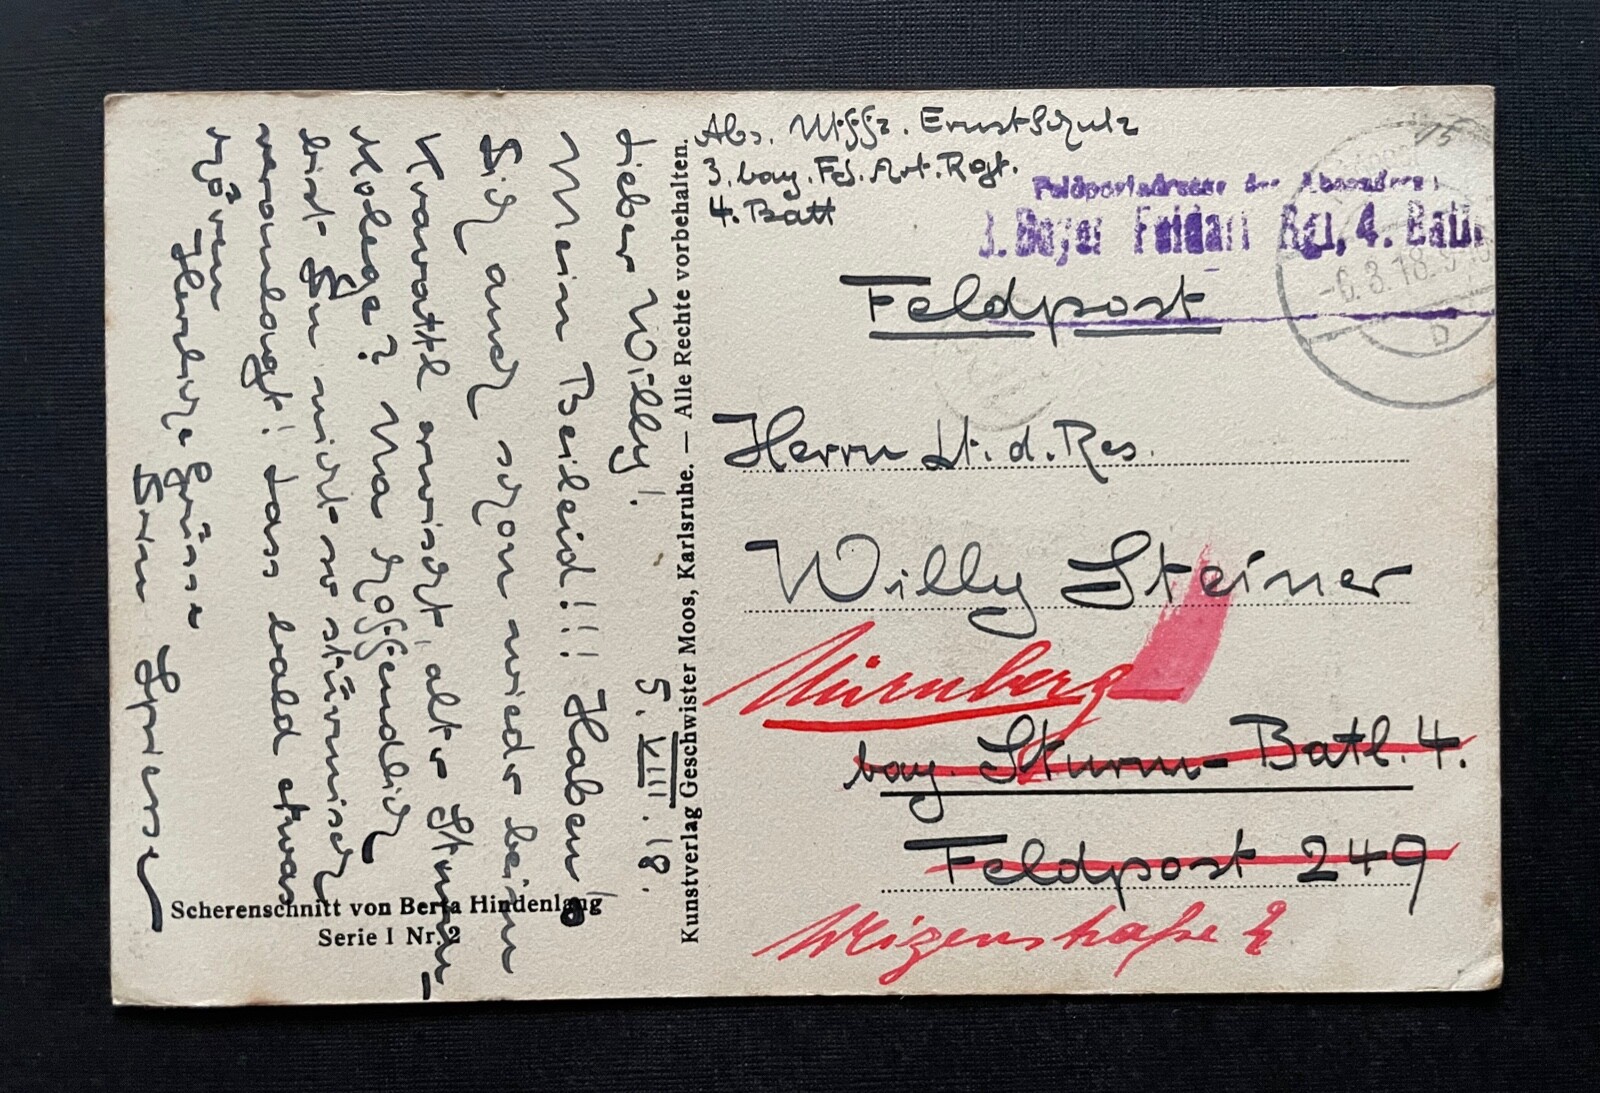 Lieber Willy!
5.VIII.18.
Mein Beileid!!! Haben
Dich auch schon wieder beim
erwischt, alter Sturm-
kolege? Na hoffendlich
bist Du nicht so stürmisch
veranlagt! Lass bald etwas
hören
Herzliche Grüsse
Dein
Scherenschnitt von Berta Hindenlang
Serie I Nr. 2
Kunstverlag Geschwister Moos, Karlsruhe. — Alle Rechte vorbehalten.
Abs. Uffz. Ernst Schulz
3. bay. Fd. Art. Regt.
4. Batt
Feldpostadresse des Absenders:
3. Bayer Feldart Rgt, 4. Batt.
-6.8.18.
b
Feldpost
Herrn Lt. d. Res.
Willy Steiner
Nürnberg
bay. Sturm-Batl. 4.
Feldpost 249